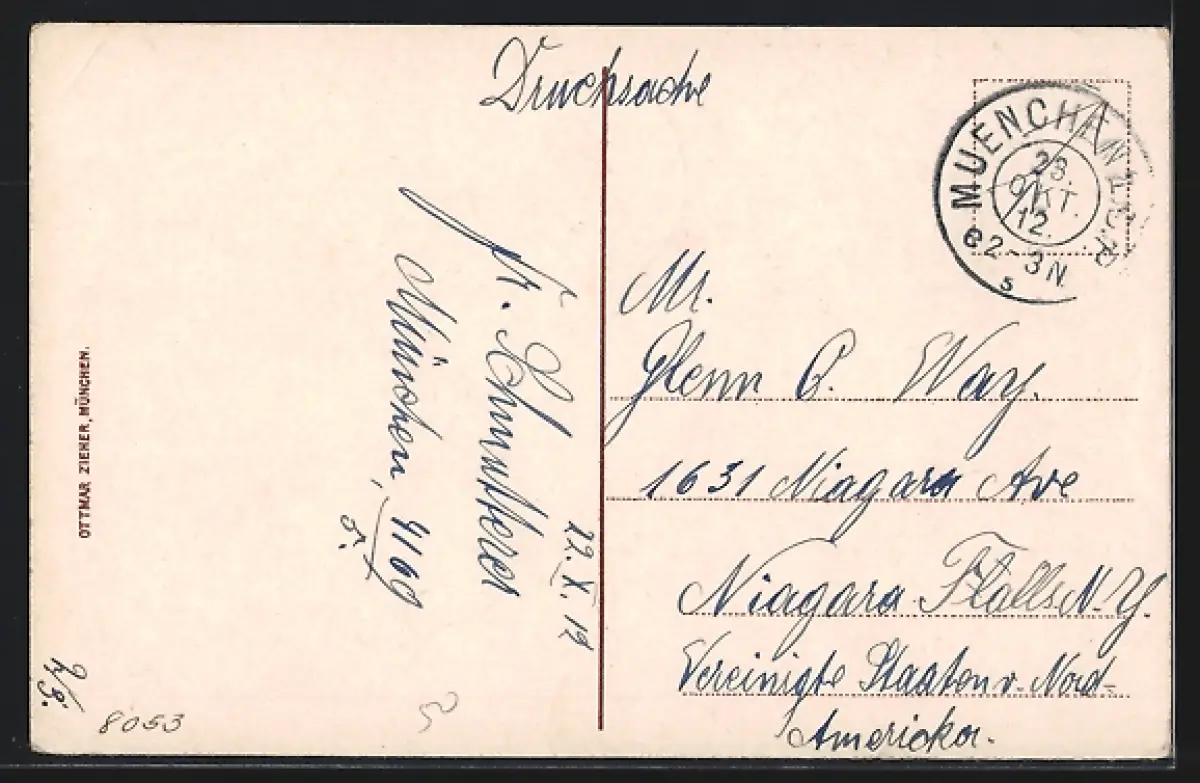 Drucksache
MUENCHEN
23.
OKT.
12.
2-3N
s
Mr.
Glenn C. Way.
1631 Niagara Ave
Niagara Falls N.Y.
Vereinigte Staaten v. Nord-
Americka.
Fr.
München,
22.X.12
OTTMAR ZIEHER, MÜNCHEN.
8053